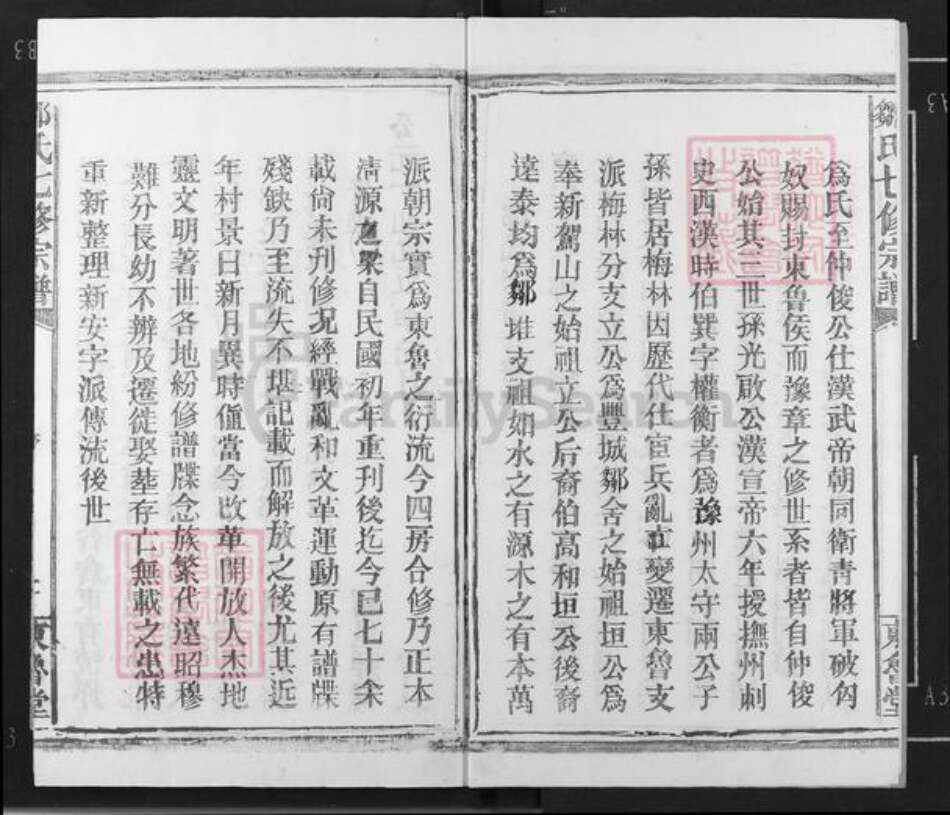 鄒氏七修宗譜
東魯堂
為氏至仲俊公仕漢武帝朝同衛青將軍破匈
奴賜封東魯侯而豫章之修世系者皆自仲俊
公始其三世孫光啟公漢宣帝六年授撫州刺
史西漢時伯巽字權衡者為豫州太守兩公子
孫皆居梅林因歷代仕宦兵亂市變遷東魯支
派梅林分支立公為豐城鄒舍之始祖垣公為
奉新駕山之始祖立公后裔伯高和垣公後裔
達泰均為鄒堆支祖如水之有源木之有本萬
派朝宗實為東魯之衍流今四房合修乃正本
清源之舉自民國初年重刊後迄今已七十余
載尚未刊修况經戰亂和文革運動原有譜牒
殘缺乃至流失不堪記載而解放之後尤其近
年村景日新月異時值當今改革開放人杰地
靈文明著世各地紛修譜牒念族繁代遠昭穆
難分長幼不辨及遷徙娶塟存亡無載之患特
重新整理新安字派傳流後世
鄒氏七修宗譜
東魯堂
FamilySearch